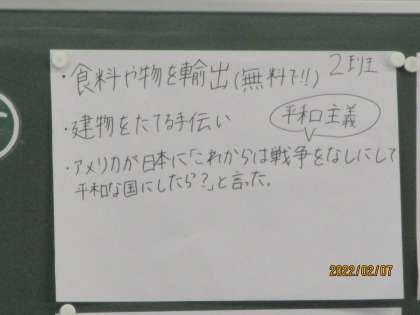 2班
・食料や物を輸出(無料で!!)
・建物をたてる手伝い
平和主義
・アメリカが日本に「これからは戦争をなしにして
平和な国にしたら?」と言った。
2022/02/07